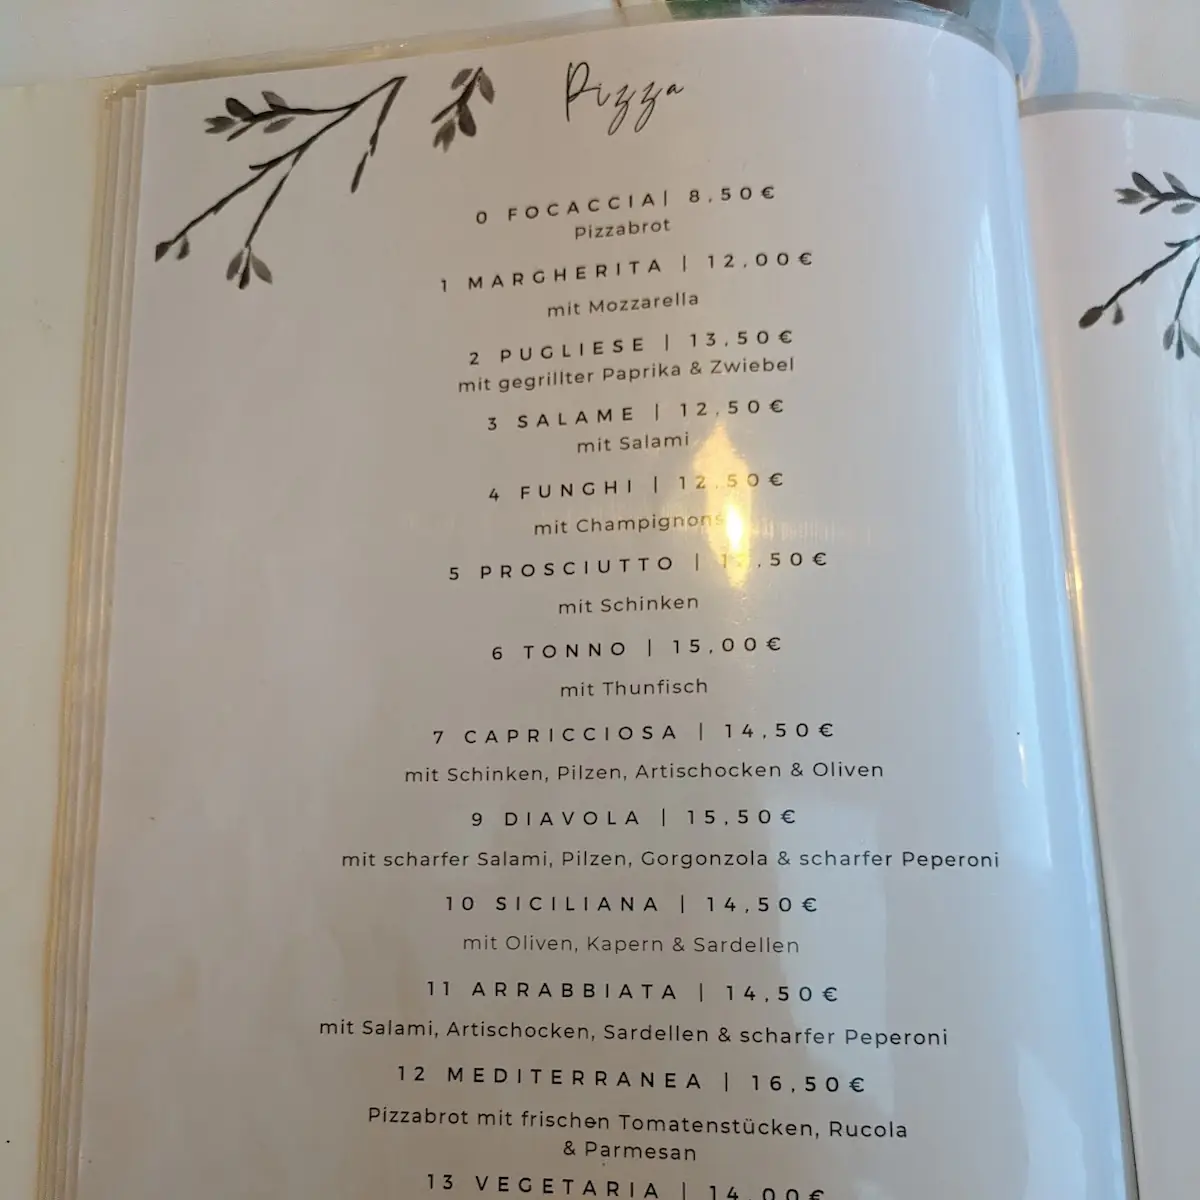 Pizza
0 FOCACCIA| 8,50€
Pizzabrot
1 MARGHERITA | 12,00€
mit Mozzarella
2 PUGLIESE | 13,50€
mit gegrillter Paprika & Zwiebel
3 SALAME | 12,50€
mit Salami
4 FUNGHI | 12,50€
mit Champignons
5 PROSCIUTTO |
mit Schinken
6 TONNO | 15,00€
mit Thunfisch
7 CAPRICCIOSA | 14,50€
mit Schinken, Pilzen, Artischocken & Oliven
9 DIAVOLA | 15,50€
mit scharfer Salami, Pilzen, Gorgonzola & scharfer Peperoni
10 SICILIANA | 14,50€
mit Oliven, Kapern & Sardellen
11 ARRABBIATA | 14,50€
mit Salami, Artischocken, Sardellen & scharfer Peperoni
12 MEDITERRANEA | 16,50€
Pizzabrot mit frischen Tomatenstücken, Rucola
& Parmesan
13 VEGETARIA | 14,00€